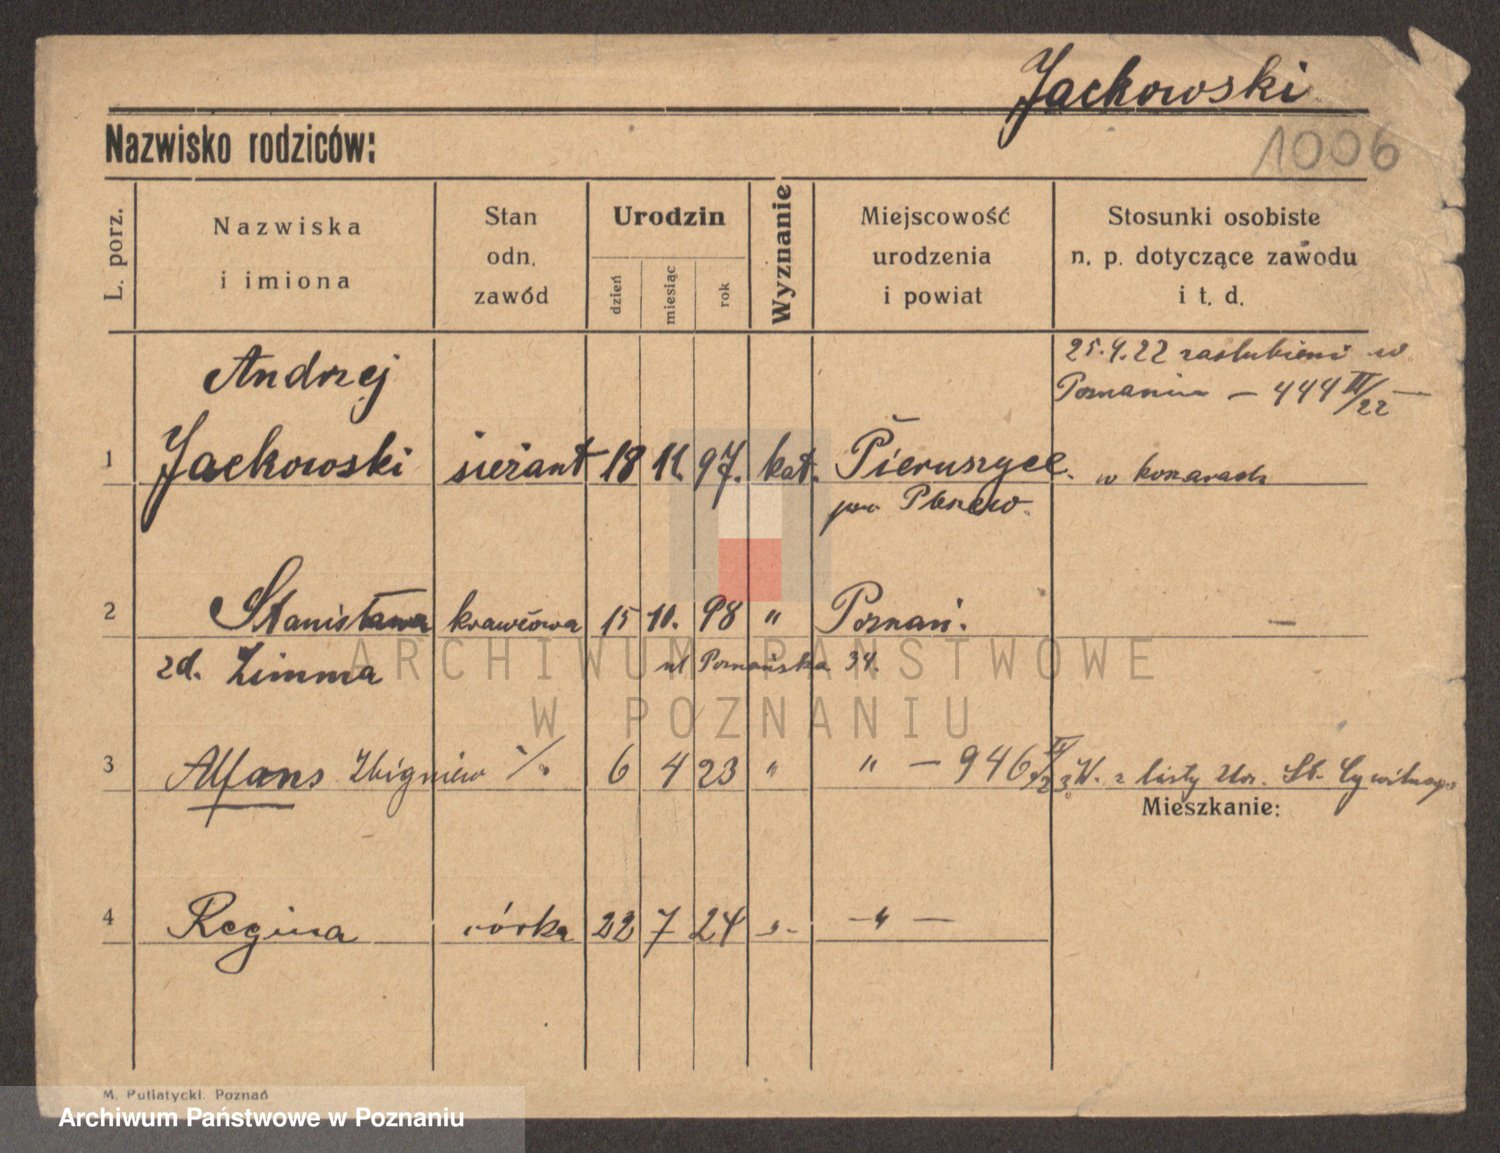 Jackowski
1006
Nazwisko rodziców:
L. porz.
Nazwiska
i imiona
Stan
odn.
zawód
Urodzin
dzień
miesiąc
rok
Wyznanie
Miejscowość
urodzenia
i powiat
Stosunki osobiste
n. p. dotyczące zawodu
i t. d.
25.4.22 zaślubieni w
Poznaniu — 444 III/22 —
Andrzej
1 Jackowski sierżant 18 11. 97. kat. Pieruszyce. w
pow Plszew.
2 Stanisława krawcowa 15 10. 98 " Poznań. —
zd. Zimma ul Poznańska 34.
3 Alfons Zbigniew ·/. 6 4 23 " " — 946 IV/23 W. z listy Urz. St. Cywilnego
Mieszkanie:
4 Regina — córka 22 7 24 -"- — " —
M. Putiatycki. Poznań
ARCHIWUM PAŃSTWOWE
W POZNANIU
Archiwum Państwowe w Poznaniu